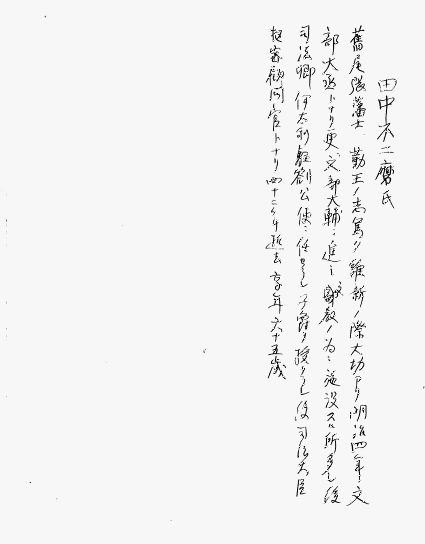 田中不二麿氏
舊尾張藩士、勤王ノ志篤ク維新ノ際大功アリ明治四年ニ文
部大丞トナリ更ニ文部大輔ニ進ミ文教ノ為ニ施設スル所多シ後
司法卿伊太利駐劄公使ニ任セラレ子爵ヲ授ケラレ後司法大臣
樞密顧問官トナリ四十二年逝去享年六十五歳